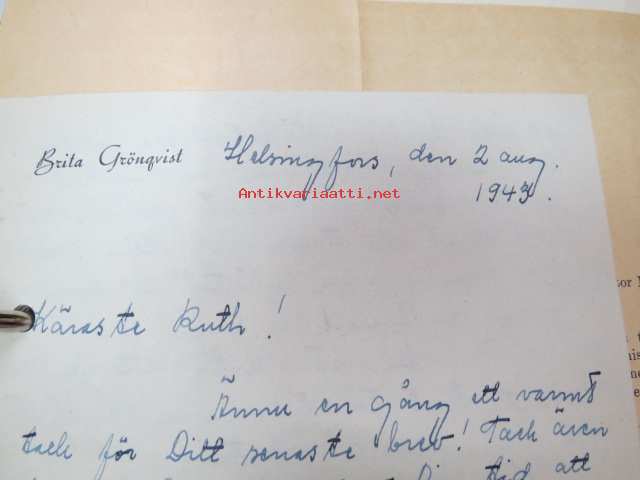 Brita Grönqvist Helsingfors, den 2 aug.
Antikvariaatti.net
1943.
Käraste Ruth!
Ännu en gång ett varmt
tack för Ditt senaste brev! Tack även
tid att